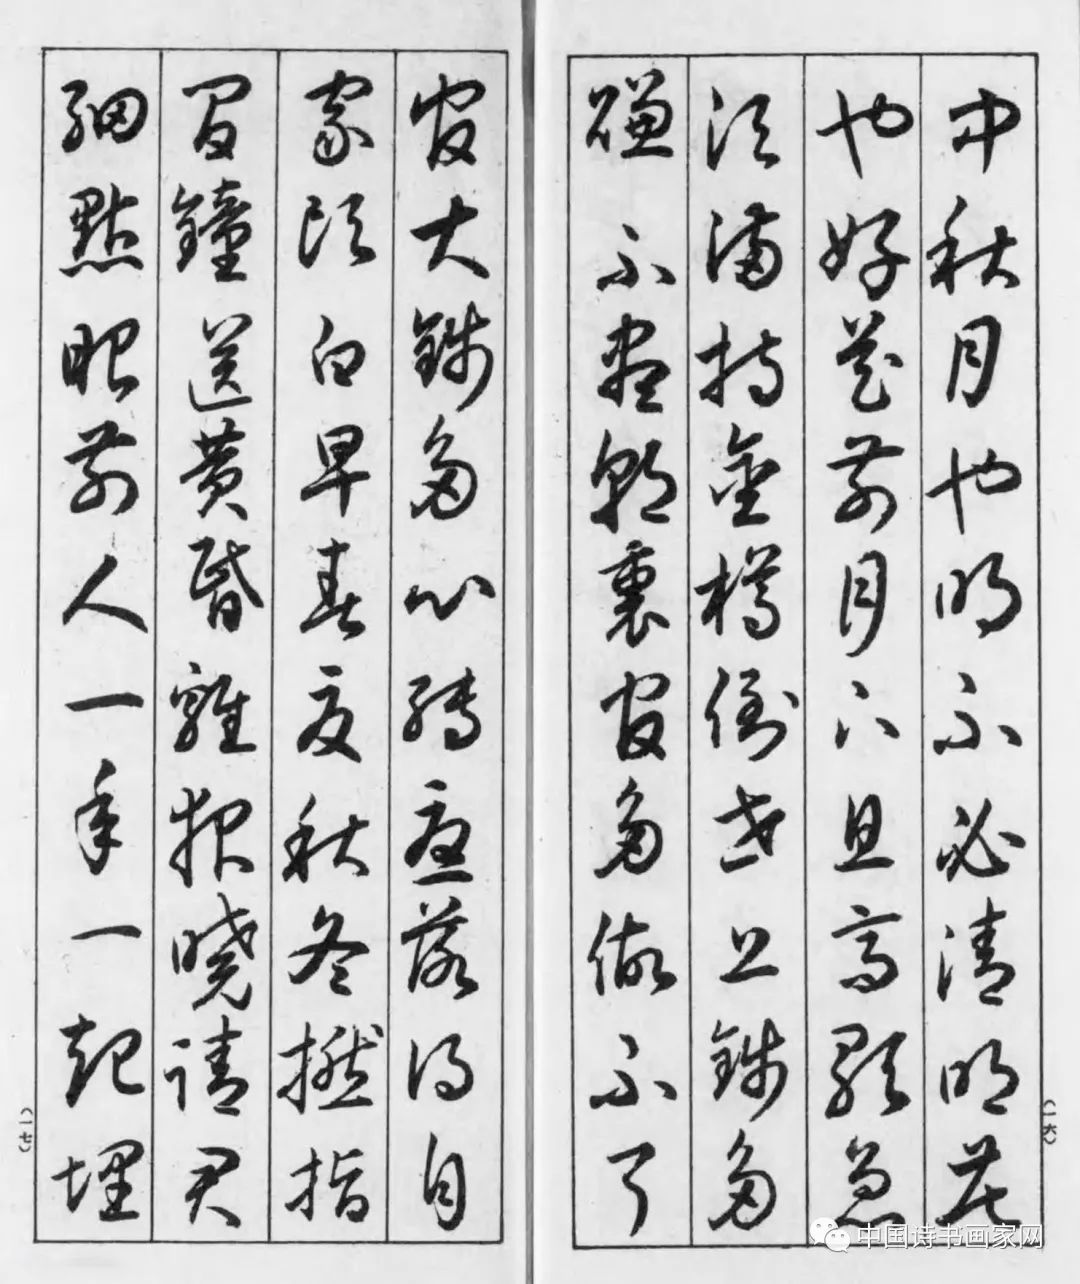 中秋月也明不必清明花
也好花前月下且高歌急
須滿持金樽倒世上錢多
賺不盡朝裏官多做不了
（一六）
官大錢多心轉憂落得自
家頭白早春夏秋冬撚指
間鐘送黃昏雞報曉請君
細點眼前人一年一起埋
（一七）
中国诗书画家网